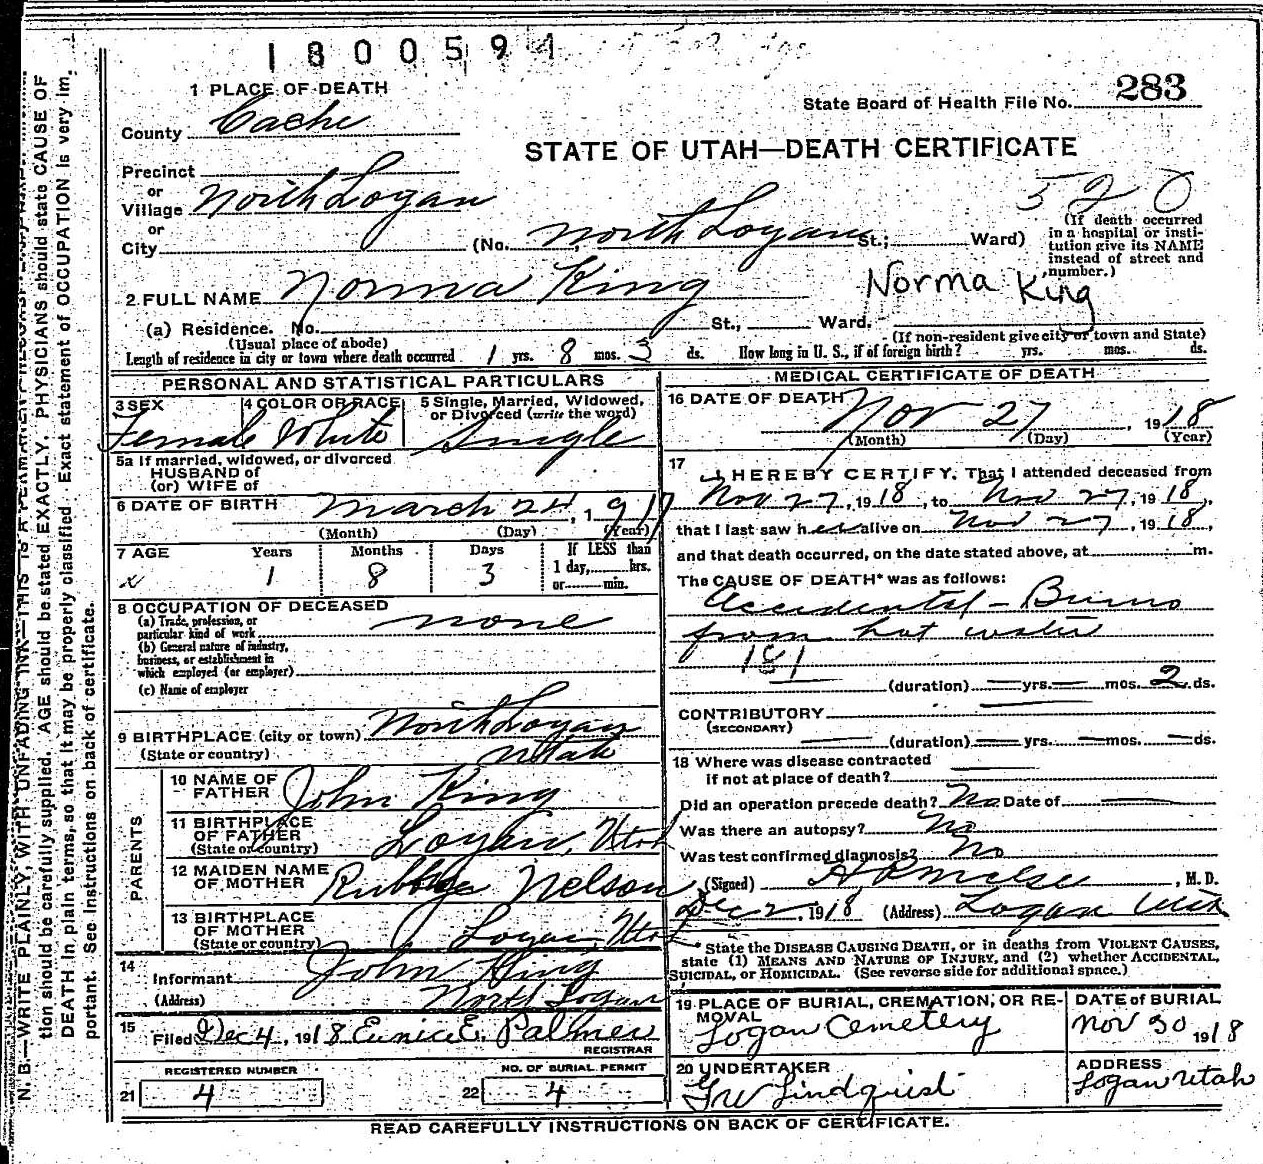 1800594
1 PLACE OF DEATH
State Board of Health File No. 283
County Cache
STATE OF UTAH—DEATH CERTIFICATE
Precinct
or
Village North Logan
or
City (No. North Logan St.; Ward)
520
(If death occurred
in a hospital or insti-
tution give its NAME
instead of street and
number.)
2 FULL NAME Norma King
Norma King
(a) Residence. No. St., Ward.
(Usual place of abode)
(If non-resident give city or town and State)
Length of residence in city or town where death occurred 1 yrs. 8 mos. 3 ds. How long in U. S., if of foreign birth? yrs. mos. ds.
PERSONAL AND STATISTICAL PARTICULARS
3 SEX
Female
4 COLOR OR RACE
White
5 Single, Married, Widowed,
or Divorced (write the word)
Single
5a If married, widowed, or divorced
HUSBAND of
(or) WIFE of
6 DATE OF BIRTH March 24, 1917
(Month) (Day) (Year)
7 AGE Years Months Days If LESS than
1 8 3 1 day, hrs.
or min.
8 OCCUPATION OF DECEASED
(a) Trade, profession, or
particular kind of work none
(b) General nature of industry,
business, or establishment in
which employed (or employer)
(c) Name of employer
9 BIRTHPLACE (city or town) North Logan
(State or country) Utah
PARENTS
10 NAME OF
FATHER John King
11 BIRTHPLACE
OF FATHER
(State or country) Logan, Utah
12 MAIDEN NAME
OF MOTHER Nelson
13 BIRTHPLACE
OF MOTHER
(State or country) Logan, Utah
14
Informant John King
(Address) North Logan
15
Filed Dec 4, 1918 Eunice E. Palmer
REGISTRAR
REGISTERED NUMBER
21 4
NO. OF BURIAL PERMIT
22 4
MEDICAL CERTIFICATE OF DEATH
16 DATE OF DEATH
Nov 27, 1918
(Month) (Day) (Year)
17
I HEREBY CERTIFY, That I attended deceased from
Nov 27, 1918, to Nov 27, 1918,
that I last saw her alive on Nov 27, 1918,
and that death occurred, on the date stated above, at m.
The CAUSE OF DEATH* was as follows:
Accidental - Burns
from hot water
181
(duration) yrs. mos. 2 ds.
CONTRIBUTORY
(SECONDARY)
(duration) yrs. mos. ds.
18 Where was disease contracted
if not at place of death?
Did an operation precede death? No Date of
Was there an autopsy? No
Was test confirmed diagnosis? No
(Signed) , M. D.
Dec 2, 1918 (Address) Logan Utah
* State the DISEASE CAUSING DEATH, or in deaths from VIOLENT CAUSES,
state (1) MEANS AND NATURE OF INJURY, and (2) whether ACCIDENTAL,
SUICIDAL, or HOMICIDAL. (See reverse side for additional space.)
19 PLACE OF BURIAL, CREMATION, OR RE-
MOVAL
Logan Cemetery
DATE of BURIAL
Nov 30 1918
20 UNDERTAKER
GW Lindquist
ADDRESS
Logan Utah
READ CAREFULLY INSTRUCTIONS ON BACK OF CERTIFICATE.
N. B.—WRITE PLAINLY, WITH UNFADING INK—THIS IS A PERMANENT RECORD.
tion should be carefully supplied. AGE should be stated EXACTLY. PHYSICIANS should state CAUSE OF
DEATH in plain terms, so that it may be properly classified. Exact statement of OCCUPATION is very im
portant. See Instructions on back of certificate.